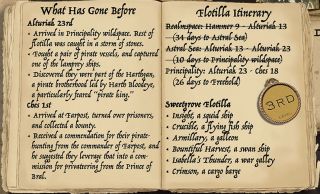 What Has Gone Before
Alturiak 23rd
• Arrived in Principality wildspace. Rest of
flotilla was caught in a storm of stones.
• Fought a pair of pirate vessels, and captured
one of the lamprey ships.
• Discovered they were part of the Harthyan,
a pirate brotherhood led by Harth Bloodeye,
a particularly feared "pirate king."
Ches 1st
• Arrived at Farpost, turned over prisoners,
and collected a bounty.
• Received a commendation for their pirate-
hunting from the commander of Farpost, and
he suggested they leverage that into a com-
mission for privateering from the Prince of
Bral.
Flotilla Itinerary
Realmspace: Hammer 9 - Alturiak 13
(34 days to Astral Sea)
Astral Sea: Alturiak 13 - Alturiak 23
(10 days to Principality wildspace)
Principality: Alturiak 23 - Ches 18
(26 days to Freehold)
Sweetgrove Flotilla
• Insight, a squid ship
• Crucible, a flying fish ship
• Armillary, a galleon
• Bountiful Harvest, a swan ship
• Isabella's Thunder, a war galley
• Crimson, a cargo barge
3RD